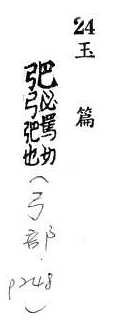 24 玉篇
弝必罵切弓弝也(弓部 p248)